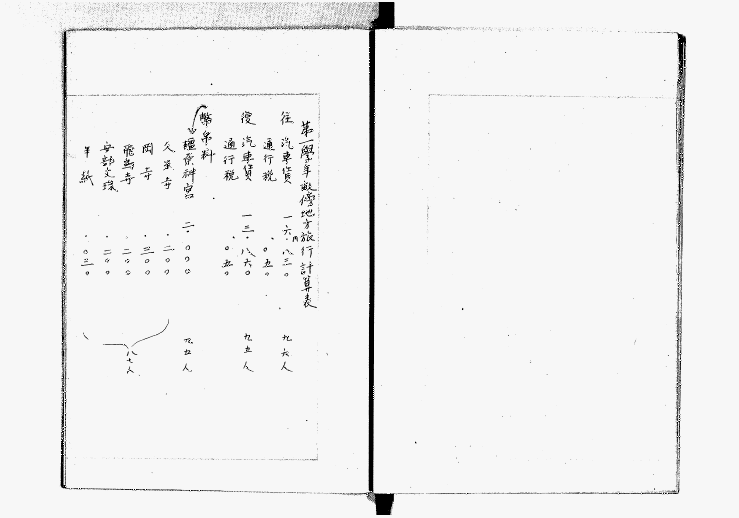 第一學年畝傍地方旅行計算表
往 汽車賃 一六円・八三〇 九六人
通行税 ・〇五〇
復 汽車賃 一三・八六〇 九五人
通行税 ・〇五〇
幣帛料
橿原神宮 二・〇〇〇 九五人
久米寺 ・二〇〇
岡寺 ・三〇〇
飛鳥寺 ・二〇〇
安部文珠 ・二〇〇
半紙 ・〇三〇
八七人